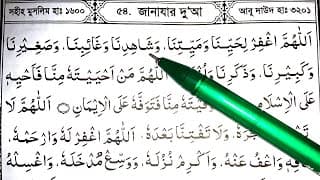 সহীহ মুসলিম হাঃ ১৬০০ ৫৪. জানাযার দু'আ আবু দাউদ হাঃ ৩২০১
اَللّٰهُمَّ اغْفِرْ لِحَيِّنَا وَمَيِّتِنَا، وَشَاهِدِنَا وَغَائِبِنَا، وَصَغِيْرِنَا
وَكَبِيْرِنَا، وَذَكَرِنَا مَنْ اَحْيَيْتَهُ مِنَّا فَاَحْيِهِ
عَلَى الْاِسْلَامِ مِنَّا فَتَوَفَّهُ عَلَى الْاِيْمَانِ اَللّٰهُمَّ لَا
وَلَا تَفْتِنَّا بَعْدَهُ اَللّٰهُمَّ اغْفِرْ لَهُ وَارْحَمْهُ،
وَاعْفُ عَنْهُ، وَاَكْرِمْ نُزُلَهُ، وَوَسِّعْ مُدْخَلَهُ، وَاغْسِلْهُ